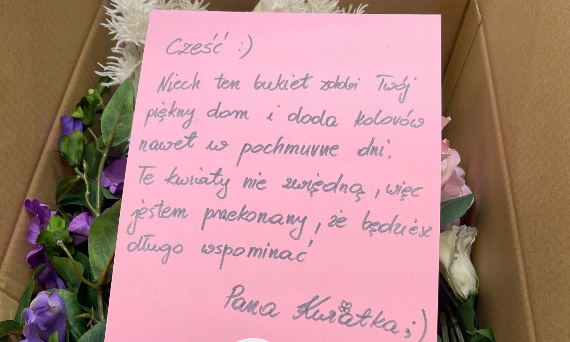 Cześć :)
Niech ten bukiet zdobi Twój
piękny dom i doda kolorów
nawet w pochmurne dni.
Te kwiaty nie zwiędną, więc
jestem przekonany, że będziesz
długo wspominać
Pana Kwiatka ;)